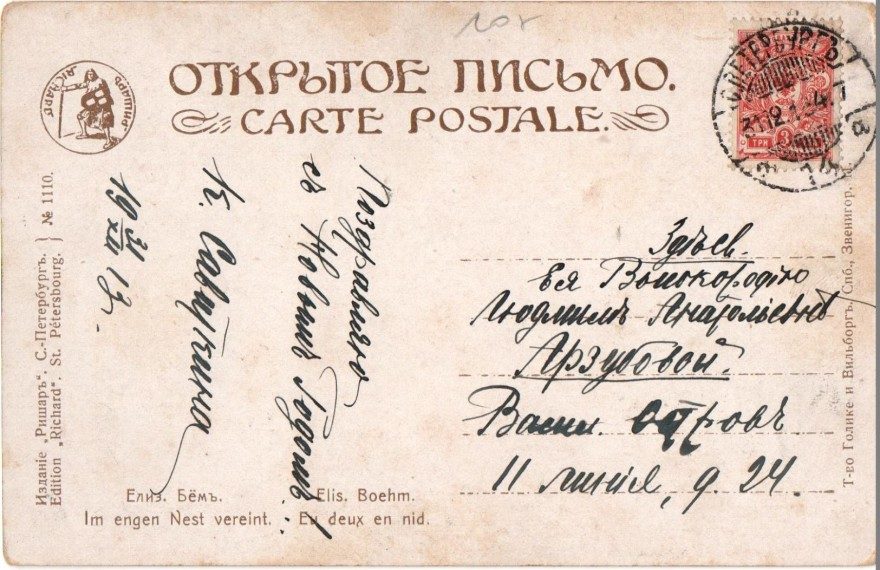 10х
РИШАРЪ
RICHARD
ОТКРЫТОЕ ПИСЬМО.
CARTE POSTALE.
С.ПЕТЕРБУРГЪ
31.12.1
ТРИ 3
Поздравляю
съ Новымъ Годомъ!
К. Савуткина
19 31/XII 13.
Здѣсь.
Ея Высокородію
Людмилѣ Анатольевнѣ
Арзубовой.
Васил. островъ
11 линія, д 24.
Елиз. Бёмъ. Elis. Boehm.
Im engen Nest vereint. Eu deux en nid.
Изданіе „Ришаръ“. С.-Петербургъ.
Edition „Richard“. St. Pétersbourg.
№ 1110.
Т-во Голике и Вильборгъ. Спб., Звенигор.